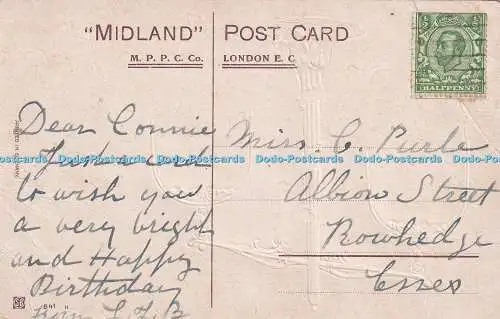 "MIDLAND" POST CARD
M. P. P. C. Co. LONDON E. C
HALFPENNY
Dear Connie
Just a card
to wish you
a very bright
and Happy
Birthday
from
Miss. C.
Albion Street
Rowhedge
Essex
Dodo-Postcards Dodo-Postcards Dodo-Postcards Dodo-Postcards Dodo-Postcards Dodo-Postcards
841